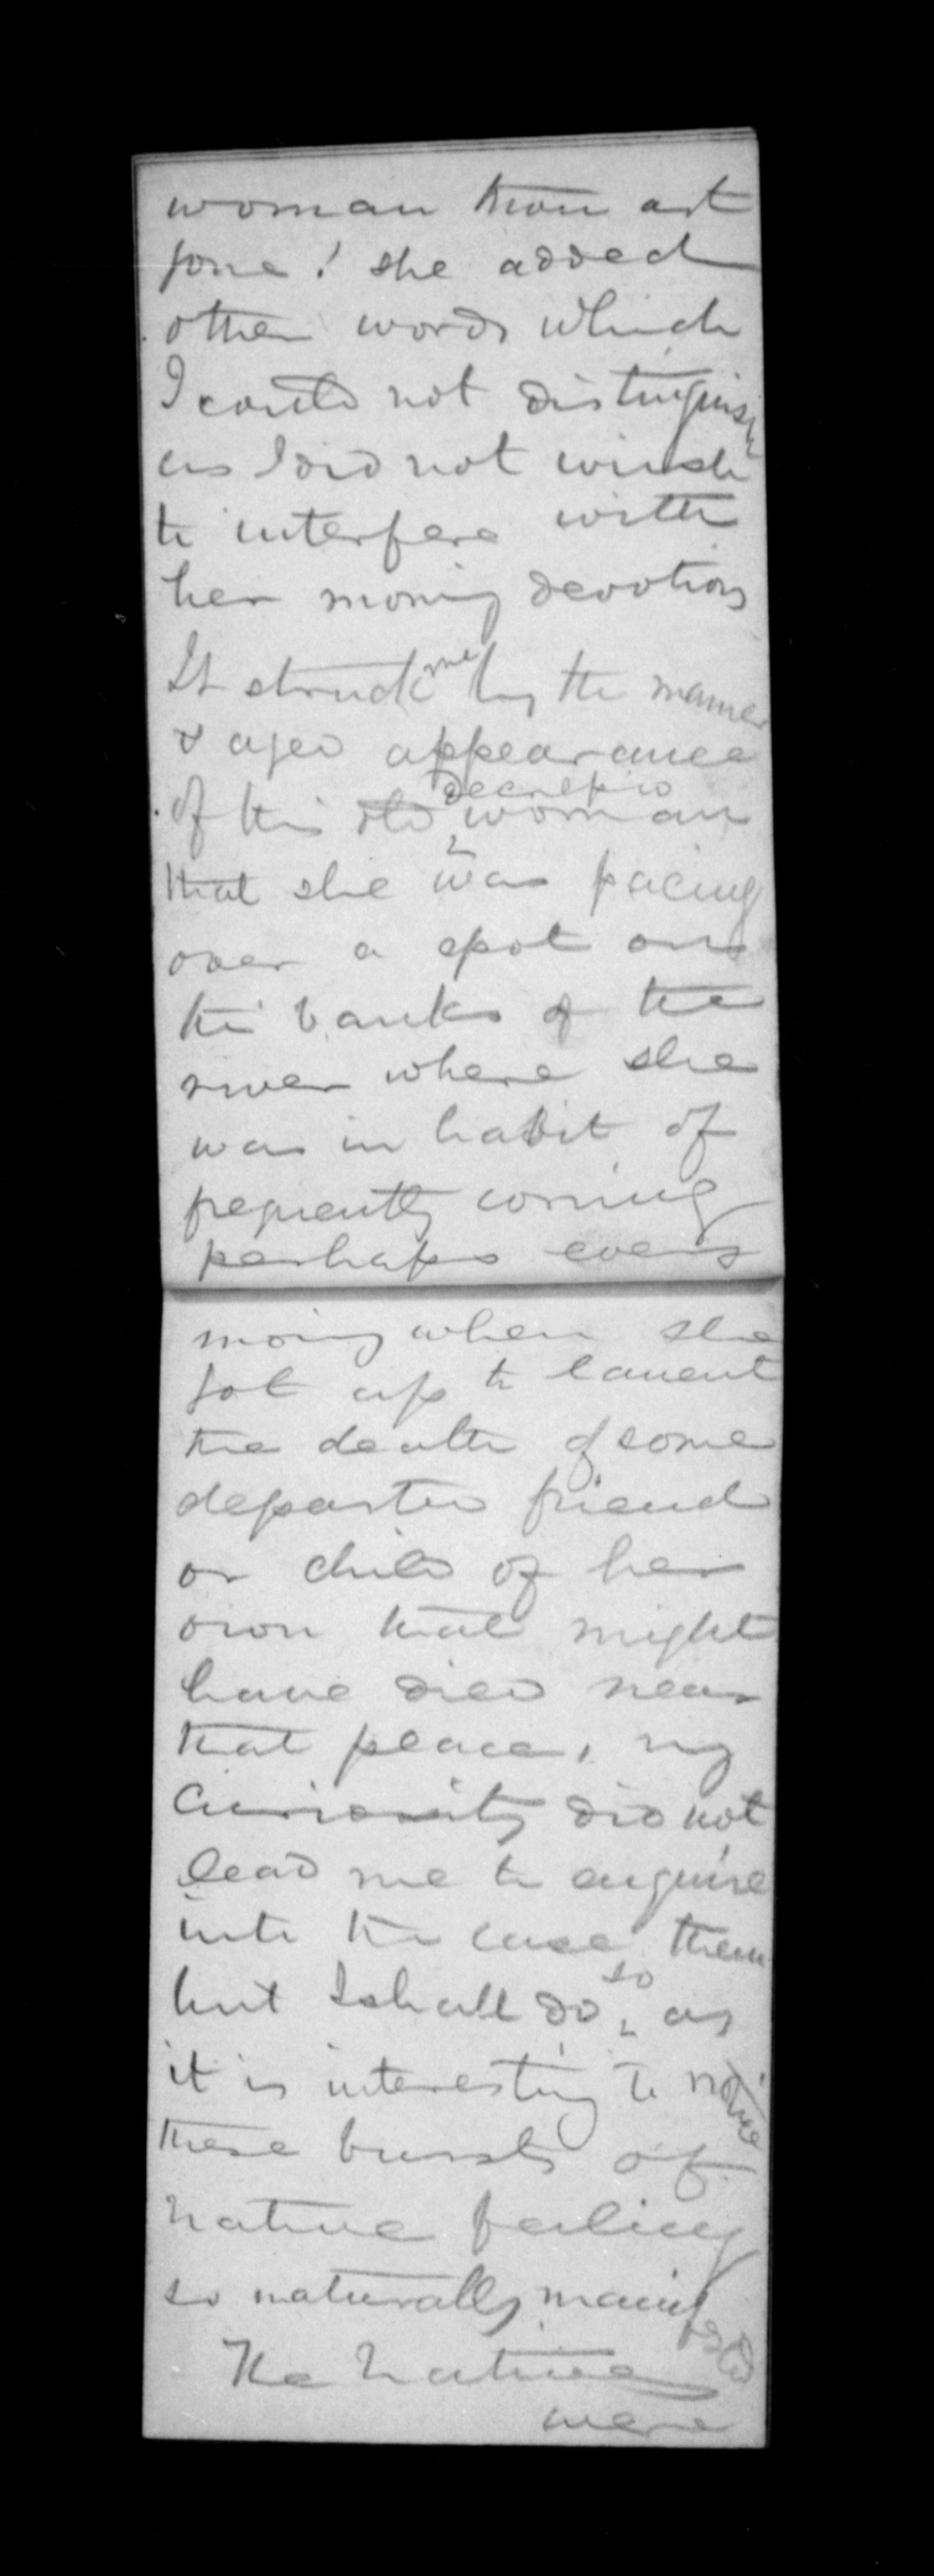 woman thou art
gone! she added
other words which
I could not distinguish
as I did not wish
to interfere with
her morning devotions
It struck me by the manner
& aged appearance
of this old decrepid woman
that she was pacing
over a spot on
the banks of the
river where she
was in habit of
frequently coming
perhaps every
morning when she
got up to lament
the death of some
departed friend
or child of her
own that might
have died near
that place, my
Curiosity did not
lead me to enquire
into the case then
but I shall do so, as
it is interesting to notice
these bursts of
native feeling
so naturally manifested
The Natives
were